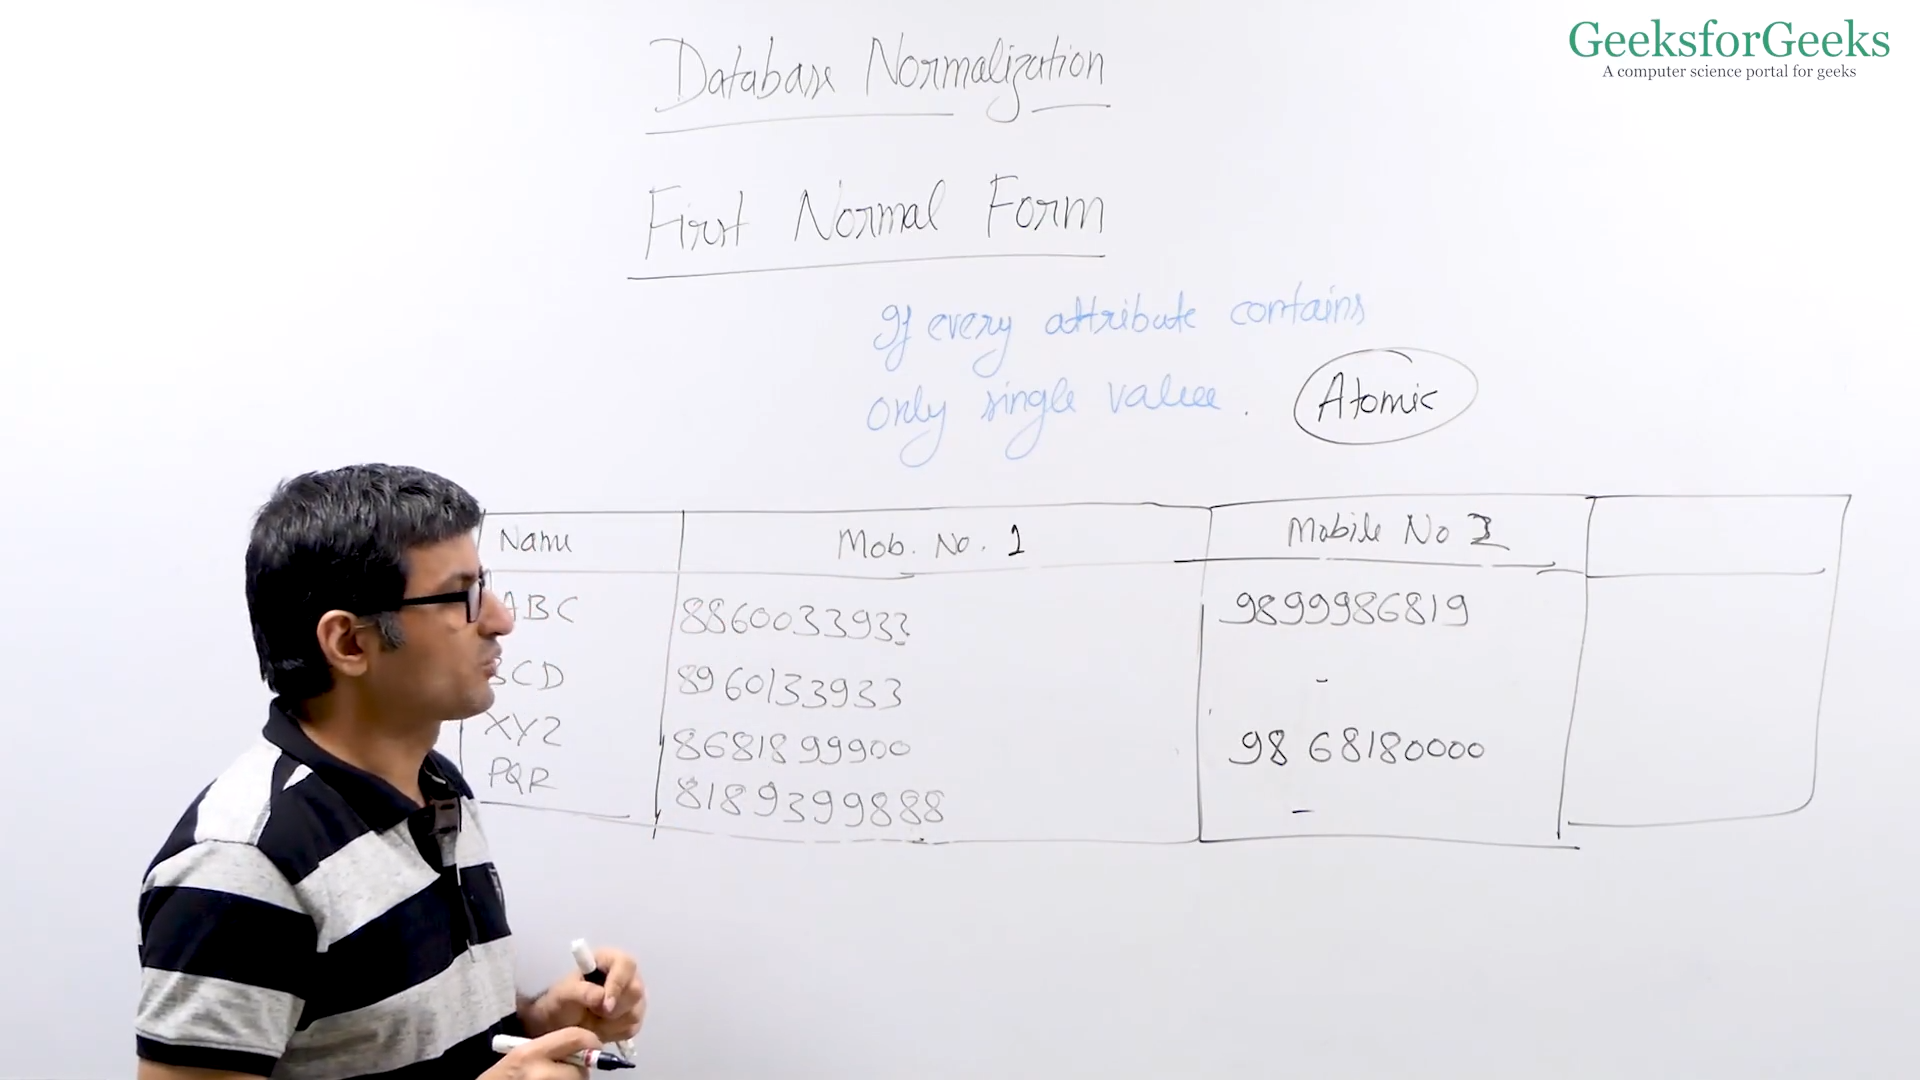 GeeksforGeeks
A computer science portal for geeks
Database Normalization
First Normal Form
If every attribute contains
only single value. Atomic
Name Mob. No. 1 Mobile No 2
ABC 8860033933 9899986819
BCD 8960133933 -
XYZ 8681899900 98 68180000
PQR 8189399888 -